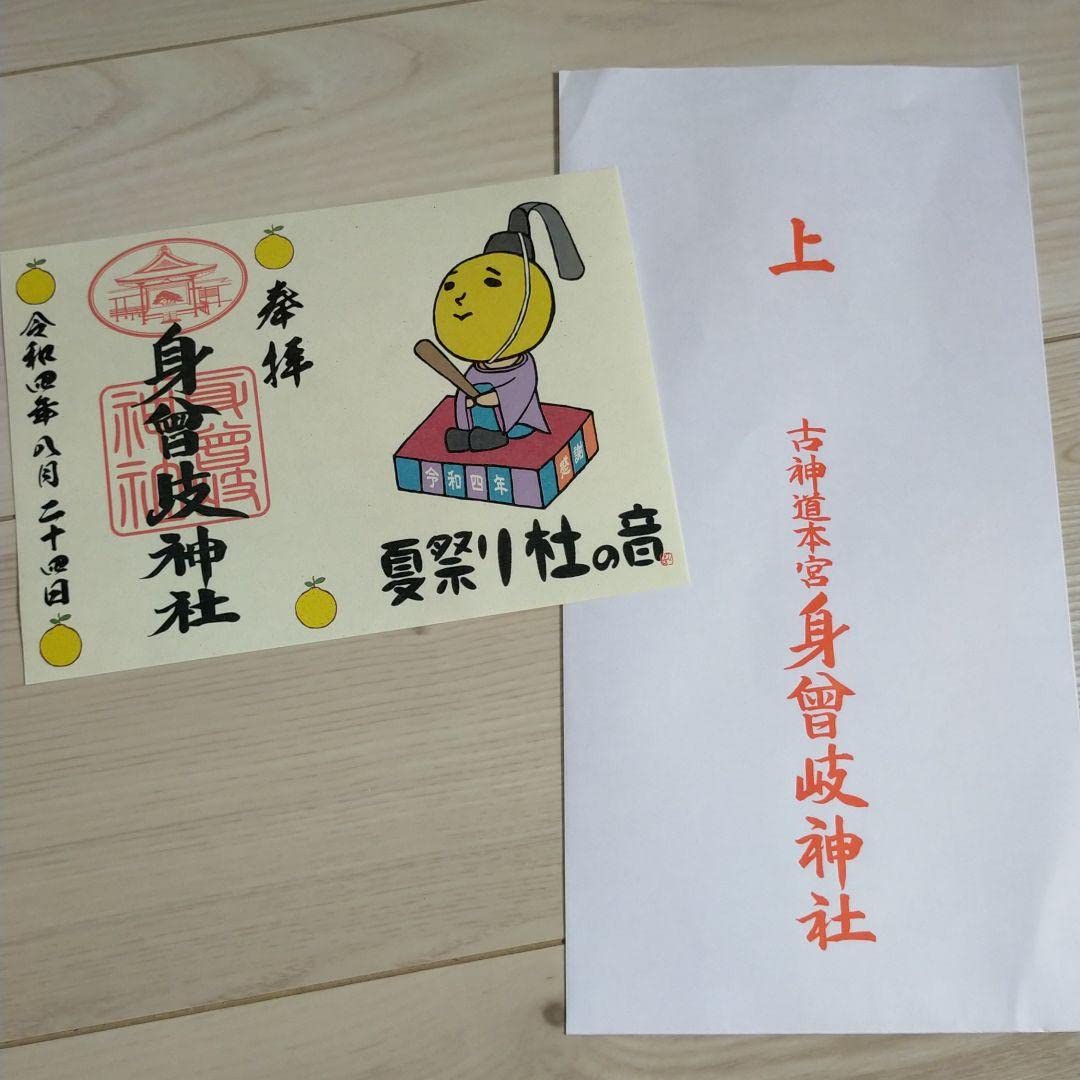 奉拝
身曾岐神社
身曾岐神社
令和四年八月二十四日
令和四年
感謝
夏祭り杜の音
上
古神道本宮身曾岐神社